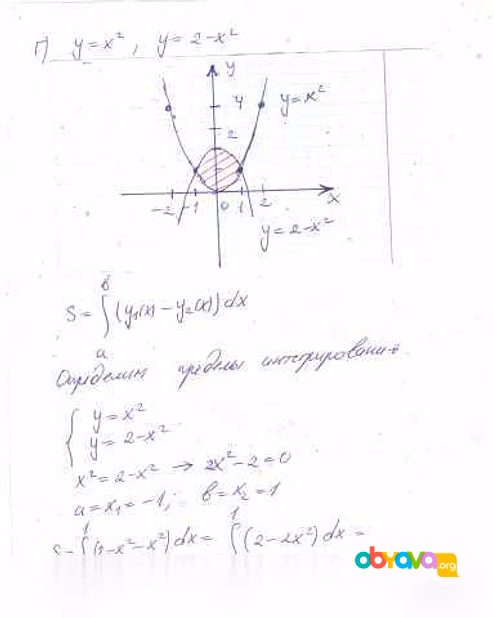 г) y = x², y = 2-x²
y
4
y = x²
2
-2 -1 0 1 2 x
y = 2-x²
в
S = ∫ (y₁(x) - y₂(x)) dx
а
Определим пределы интегрирования
{ y = x²
y = 2-x²
x² = 2-x² → 2x²-2=0
a = x₁ = -1; в = x₂ = 1
1 1
S = ∫ (2-x²-x²) dx = ∫ (2-2x²) dx =
obyava.org